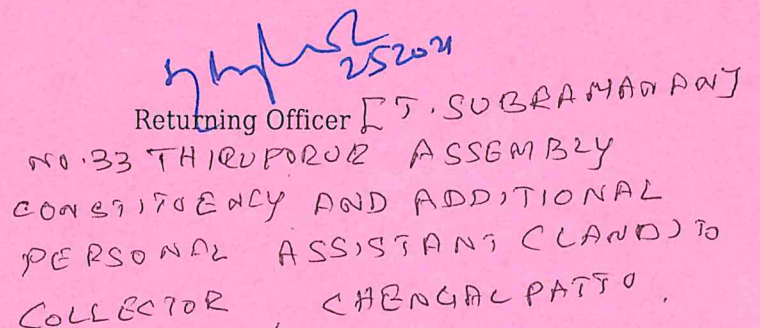 252021
Returning Officer [T. SUBRAMANIAN]
NO.33 THIRUPORUR ASSEMBLY
CONSTITUENCY AND ADDITIONAL
PERSONAL ASSISTANT (LAND) TO
COLLECTOR, CHENGALPATTU.